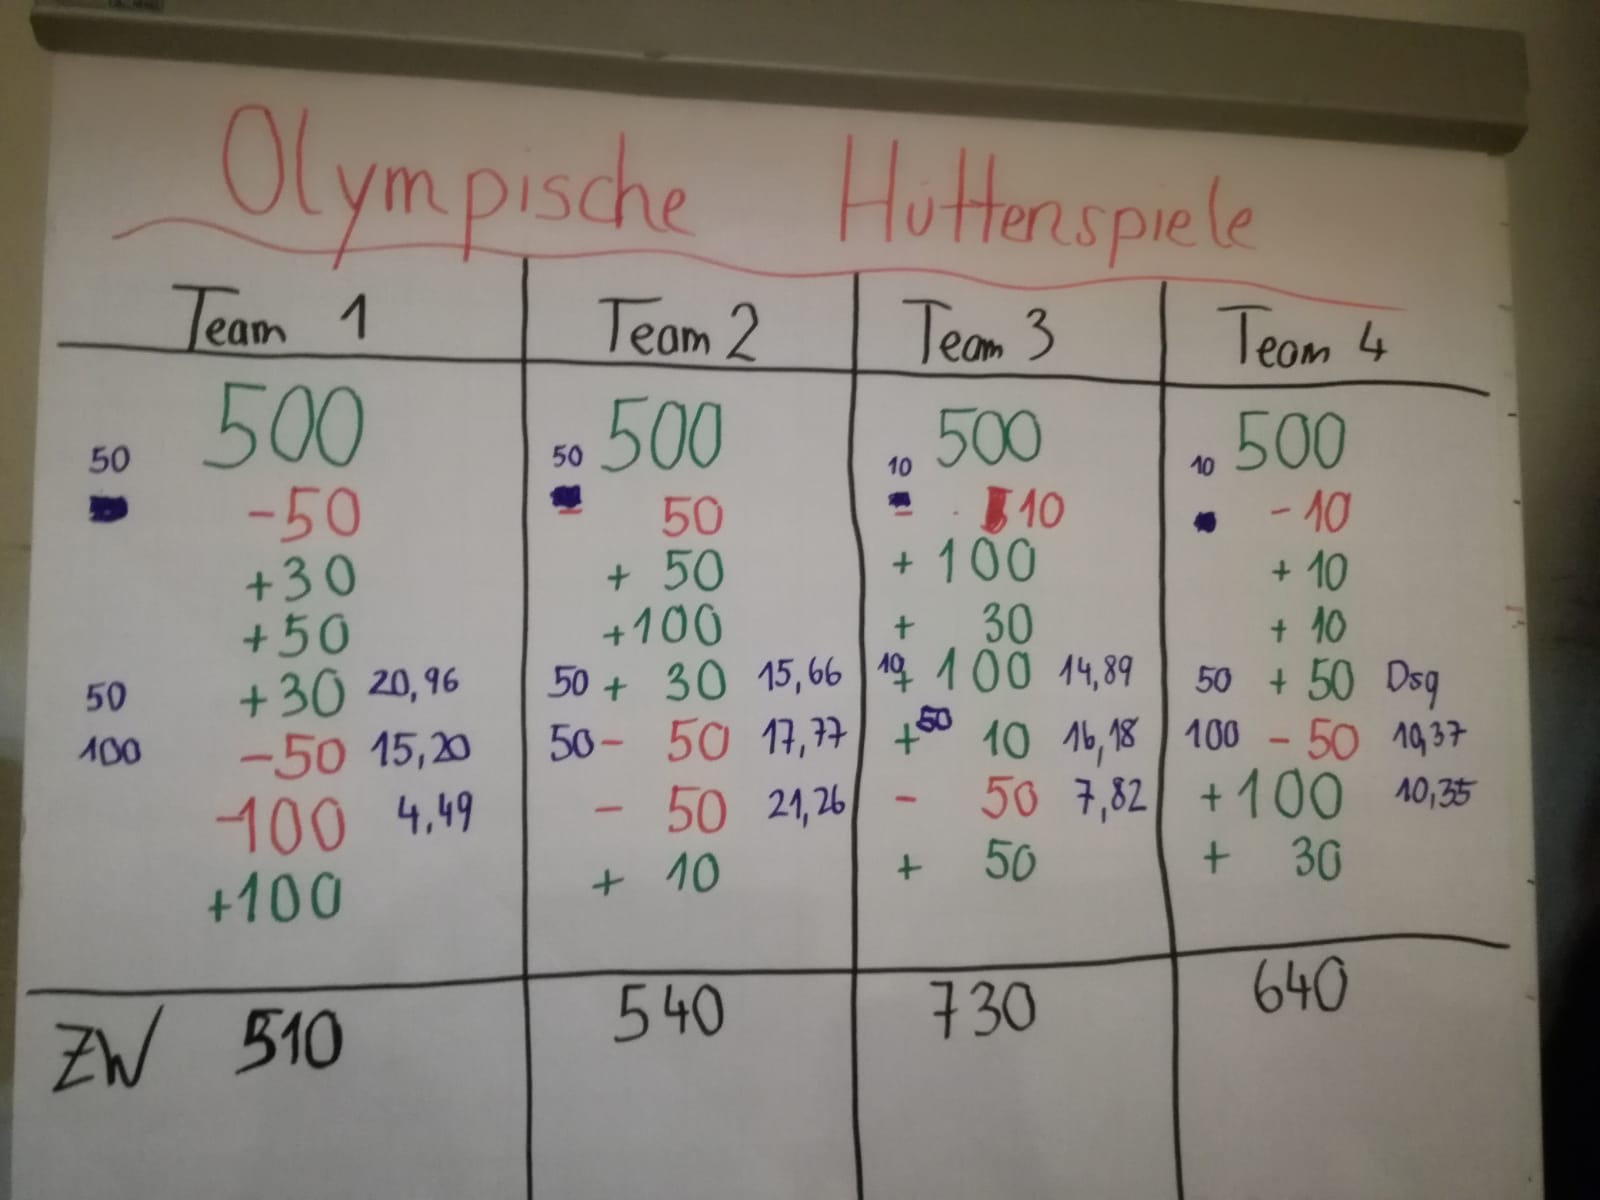 Olympische Hüttenspiele
Team 1 Team 2 Team 3 Team 4
50 500 50 500 10 500 10 500
-50 - 50 - 10 - 10
+30 + 50 + 100 + 10
+50 +100 + 30 + 10
50 +30 20,96 50 + 30 15,66 10 + 100 14,89 50 + 50 Dsq
100 -50 15,20 50 - 50 17,77 + 50 10 16,18 100 - 50 10,37
-100 4,49 - 50 21,26 - 50 7,82 +100 10,35
+100 + 10 + 50 + 30
ZW 510 540 730 640